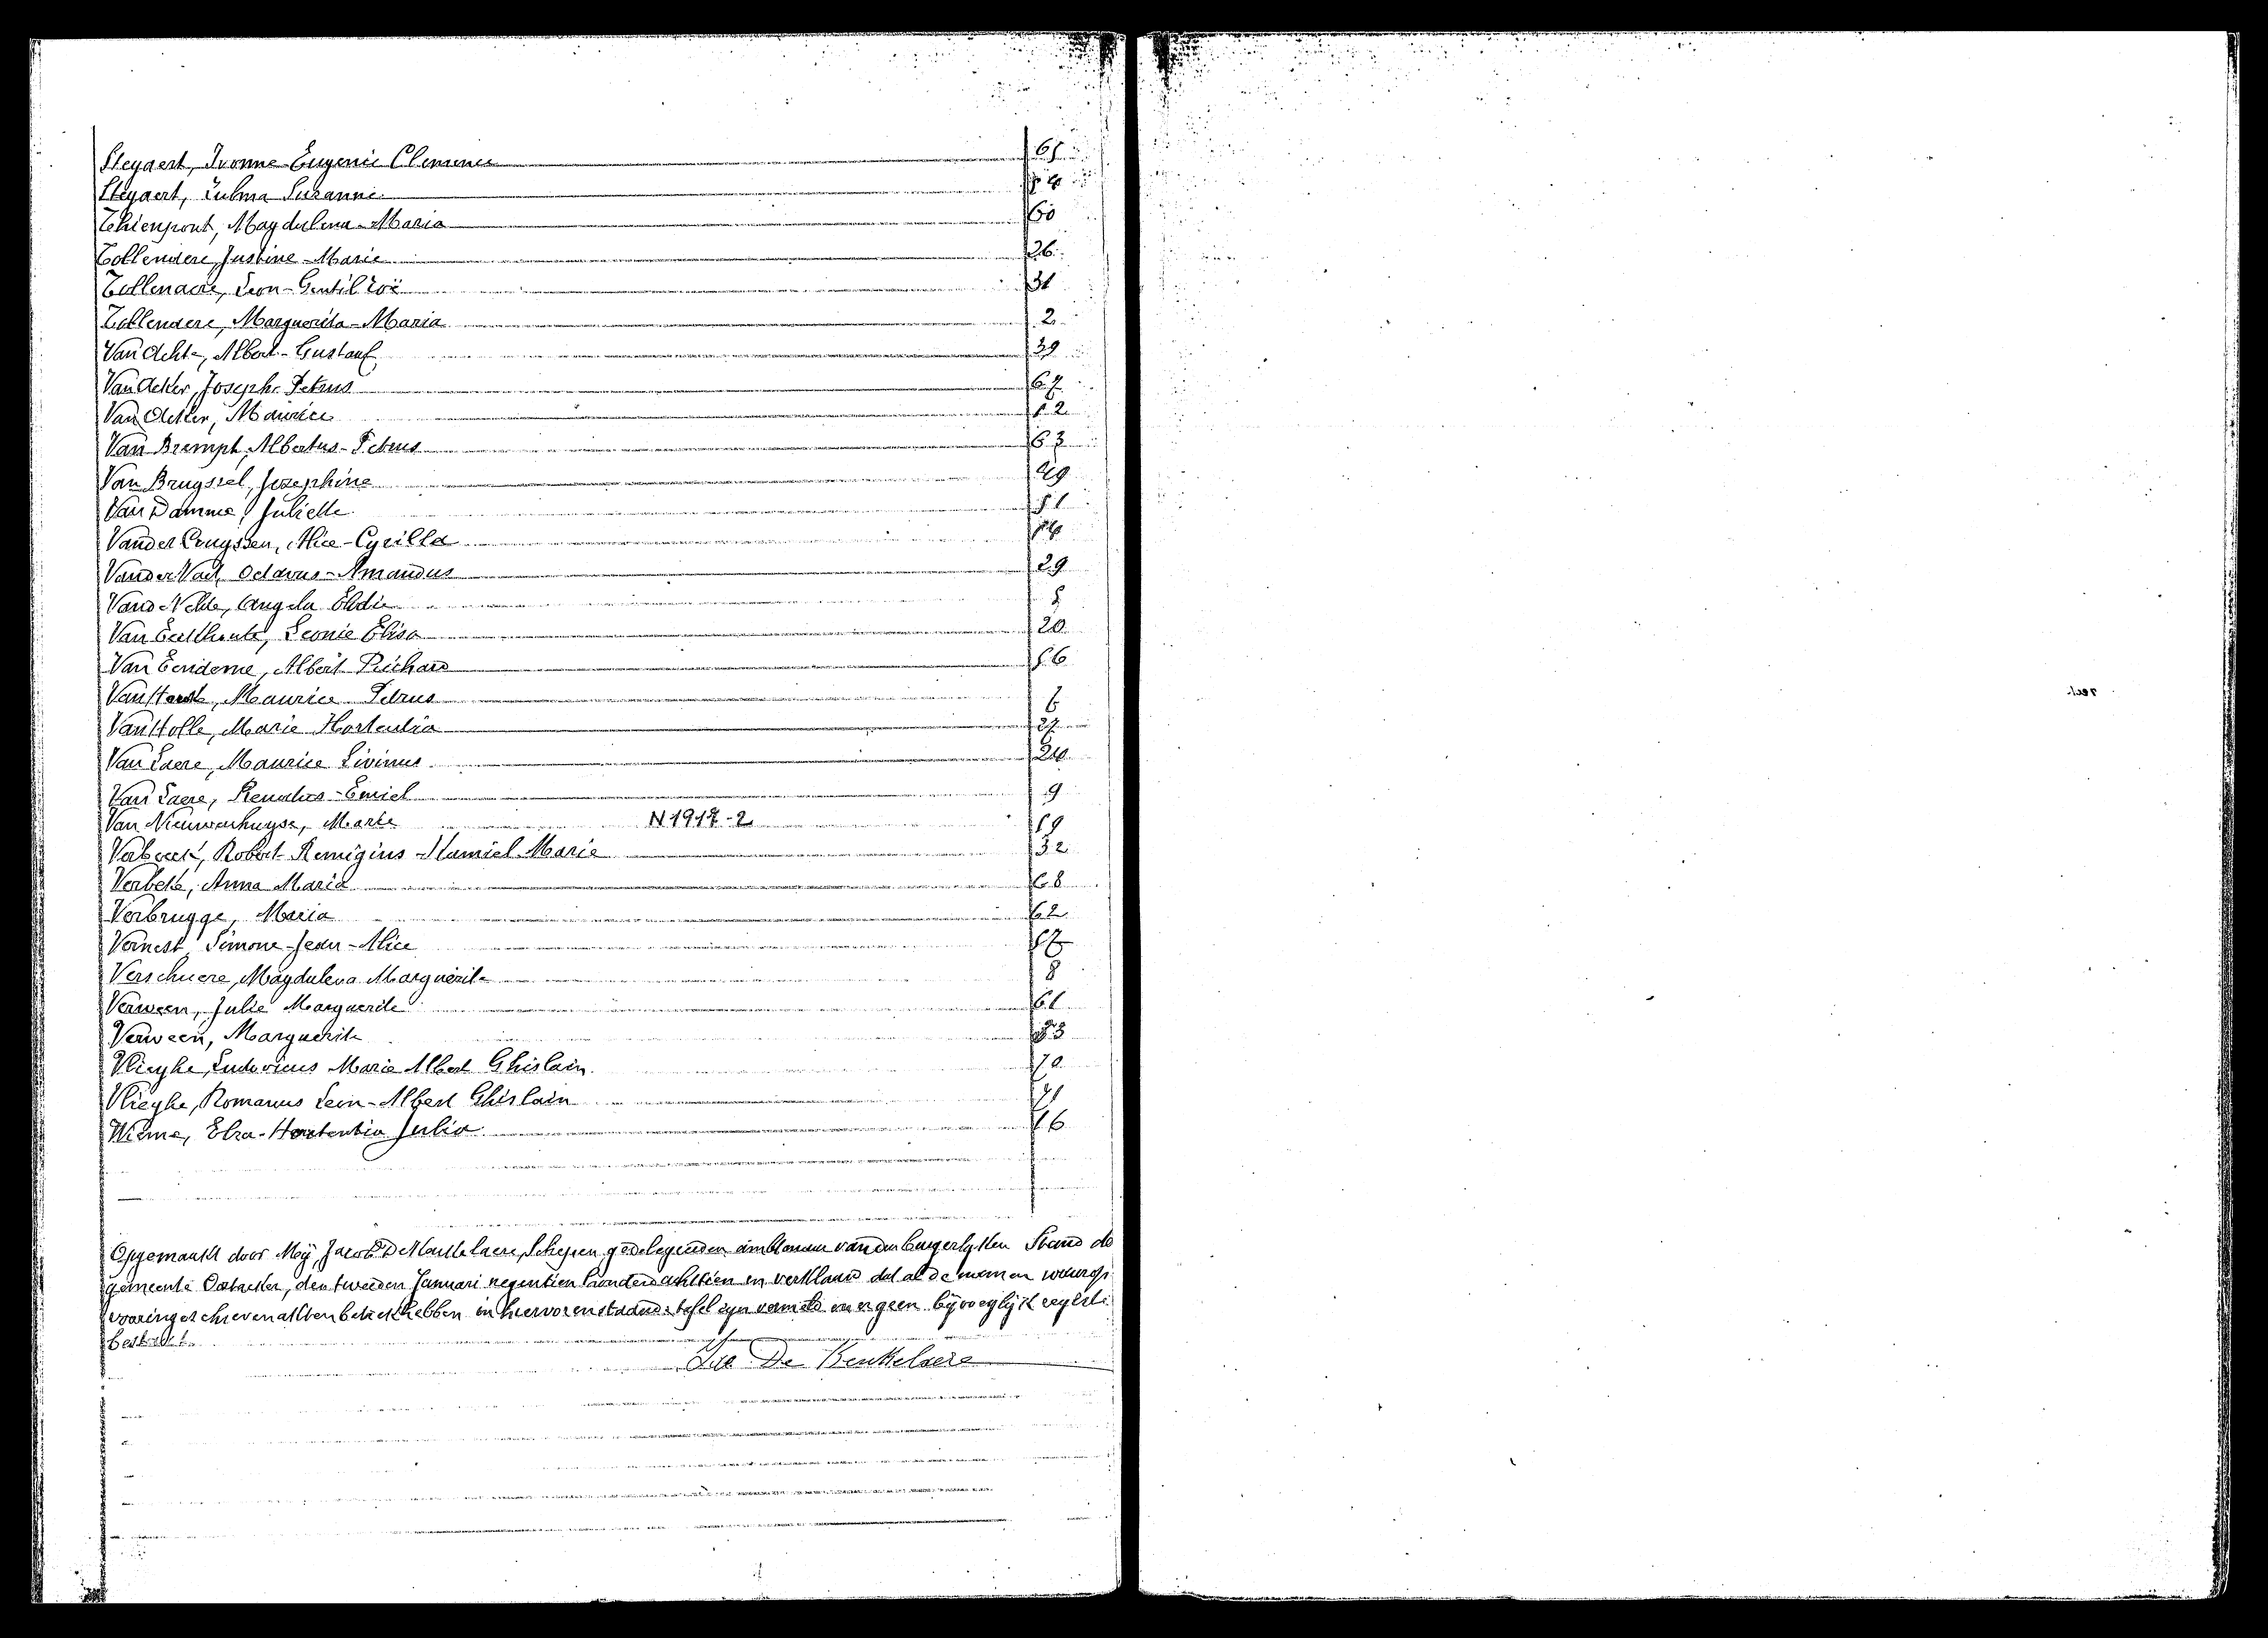 Steyaert, Ivonne Eugenie Clemence 65
Steyaert, Zulma Suzanne 54
Thienpont, Magdalena-Maria 60
Tollenaere, Justine-Marie 26
Tollenaere, Leon-Gentil Zoë 31
Tollenaere, Marguerita-Maria 2
Van Ackte, Albert-Gustaaf 39
Van Acker, Joseph Petrus 67
Van Acker, Maurice 52
Van Brempt, Albertus-Petrus 63
Van Bruyssel, Josephine 49
Van Damme, Juliette 51
Vander Cruyssen, Alice-Cyrilla 14
Vander Vaet, Octavus-Amandus 29
Vande Velde, Angela Elodie 5
Van Eeckhoute, Leonie Elisa 20
Van Eendeme, Albert Richard 56
Van Haesk, Maurice Petrus 6
Van Holle, Marie Hortentia 27
Van Laere, Maurice Livinus 24
Van Laere, Renatus-Emiel 9
Van Nieuwenhuyse, Marie N 1917-2 19
Verbeeck, Robert Remigius-Kamiel-Marie 32
Verbeke, Anna Maria 68
Verbrugge, Maria 62
Vernest Simone-Jean-Alice 57
Verschuere, Magdalena Marguerite 8
Verween, Julie Marguerite 61
Verween, Marguerite 33
Vlieghe, Ludovicus Marie Albert Ghislain 70
Vlieghe, Romanus Leon-Albert Ghislain 71
Wieme, Elza-Hortentia Julia 16
Opgemaakt door Mij, Jacob De Maesschelaere, Schepen gedelegeerden ambtenaar van den burgerlyken Stand de
gemeente Oostacker, den tweeden Januari negentien honderd achttien en verklaard dat al de namen waarop
vooringeschreven akten betrek hebben in hiervorenstaande tafel zyn vermeld en er geen bijvoeglijk register
bestaat.
De Beukelaere